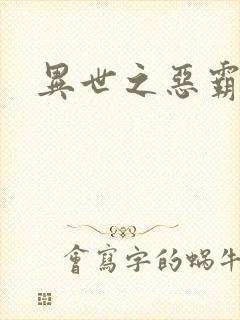 異世之惡霸
會寫字的蝸牛